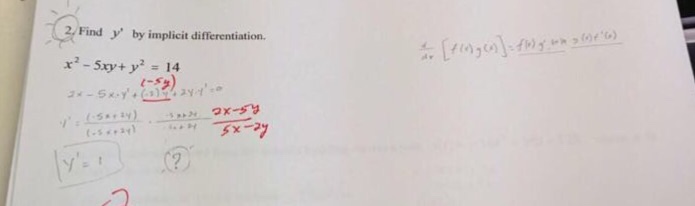 2. Find y' by implicit differentiation.
x² - 5xy + y² = 14
(-5y)
2x - 5x·y' + (-5)y' + 2y·y' = 0
y' = (-5x+2y) / (-5x+2y) 2x-5y / 5x-2y
y' = 1 (?)
d/dx [f(x)g(x)] = f(x)g'(x) + g(x)f'(x)